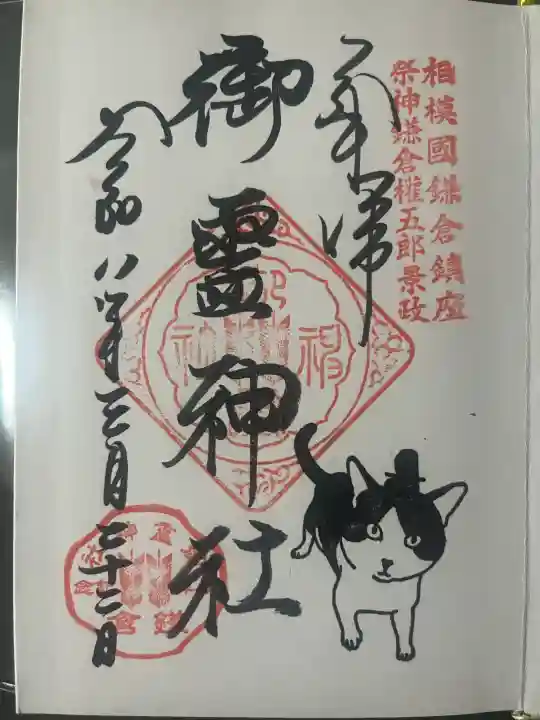 相模國鎌倉鎮座
祭神鎌倉権五郎景政
奉拝
御霊神社
令和八年三月二十二日